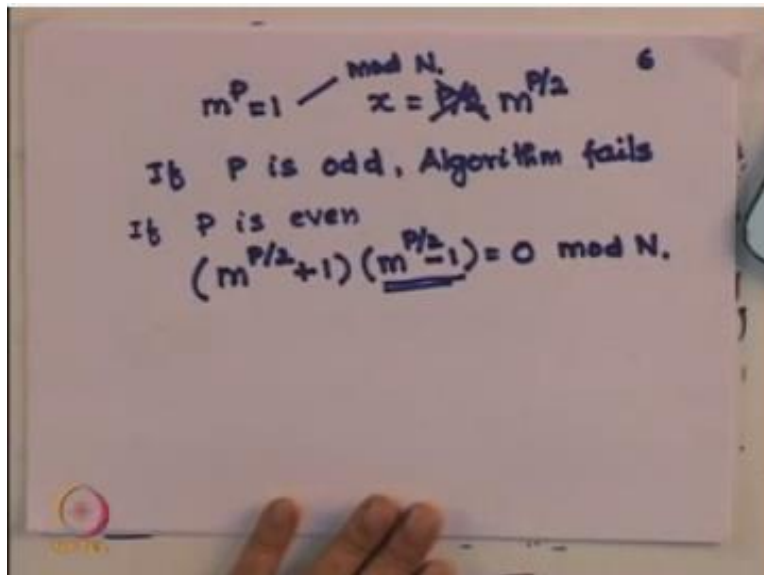 6
mod N.
m^P = 1 x = m^{P/2}
If P is odd, Algorithm fails
If P is even
(m^{P/2} + 1) (m^{P/2} - 1) = 0 mod N.